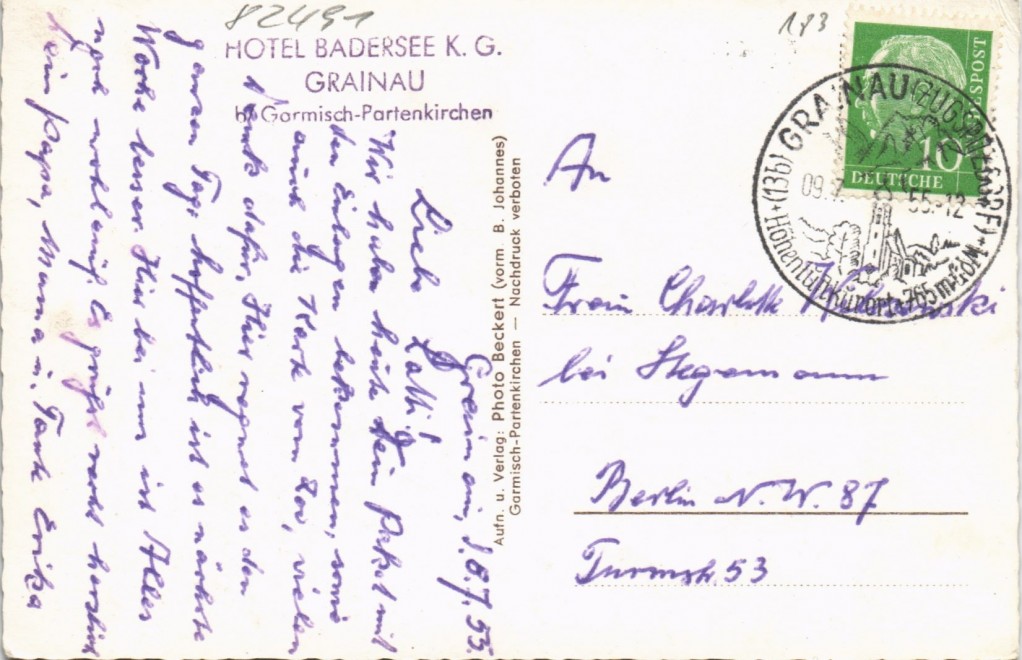 82491
183
HOTEL BADERSEE K. G.
GRAINAU
b. Garmisch-Partenkirchen
Grainau, d. 8.7.55
Liebe Lotti!
Wir haben heute Dein Paket mit
den Einlagen bekommen, sowie
auch die Karte vom Zoo, vielen
Dank dafür. Hier regnet es den
ganzen Tag, hoffentlich ist es nächste
Woche besser. Hier bei uns ist Alles
noch wohlauf. Es grüßt recht herzlich
Dein Papa, Mama u. Tante Erika
Aufn. u. Verlag: Photo Beckert (vorm. B. Johannes)
Garmisch-Partenkirchen — Nachdruck verboten
DEUTSCHE
10
GRAINAU (ZUGSPITZDORF)
(13b)
Höhenluftkurort 765 m ü. d. M.
09.7.55-12
An
Frau Charlotte
bei Stegemann
Berlin N.W. 87
Turmstr. 53